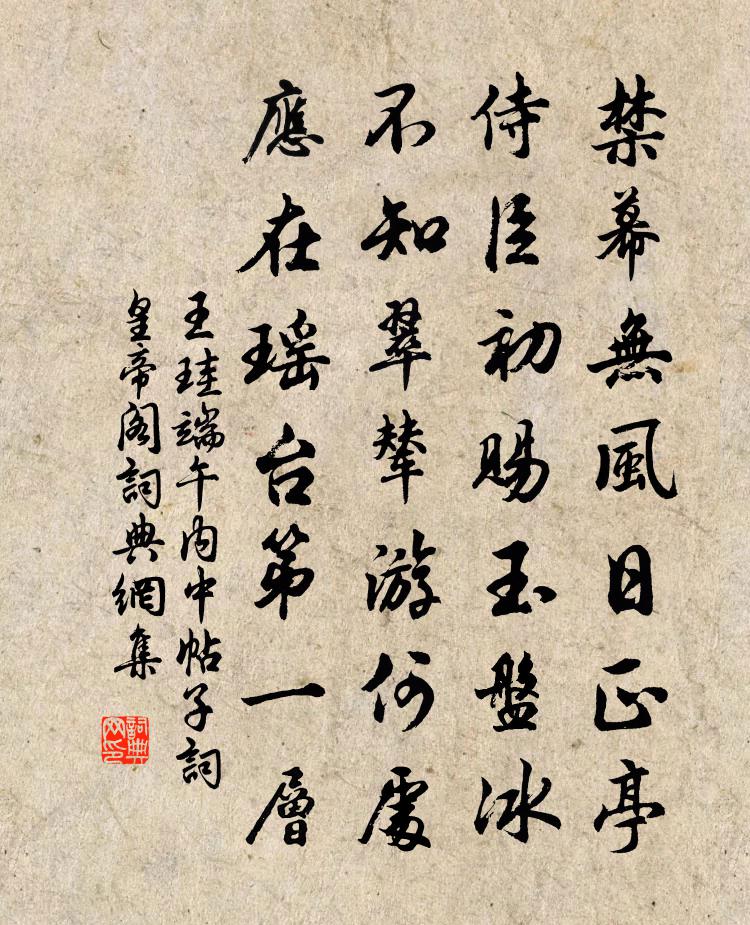 禁幕無風日正亭
侍臣初賜玉盤冰
不知翠輦游何處
應在瑶台第一層
王珪端午内中帖子詞
皇帝阁詞典網集
詞典
网印